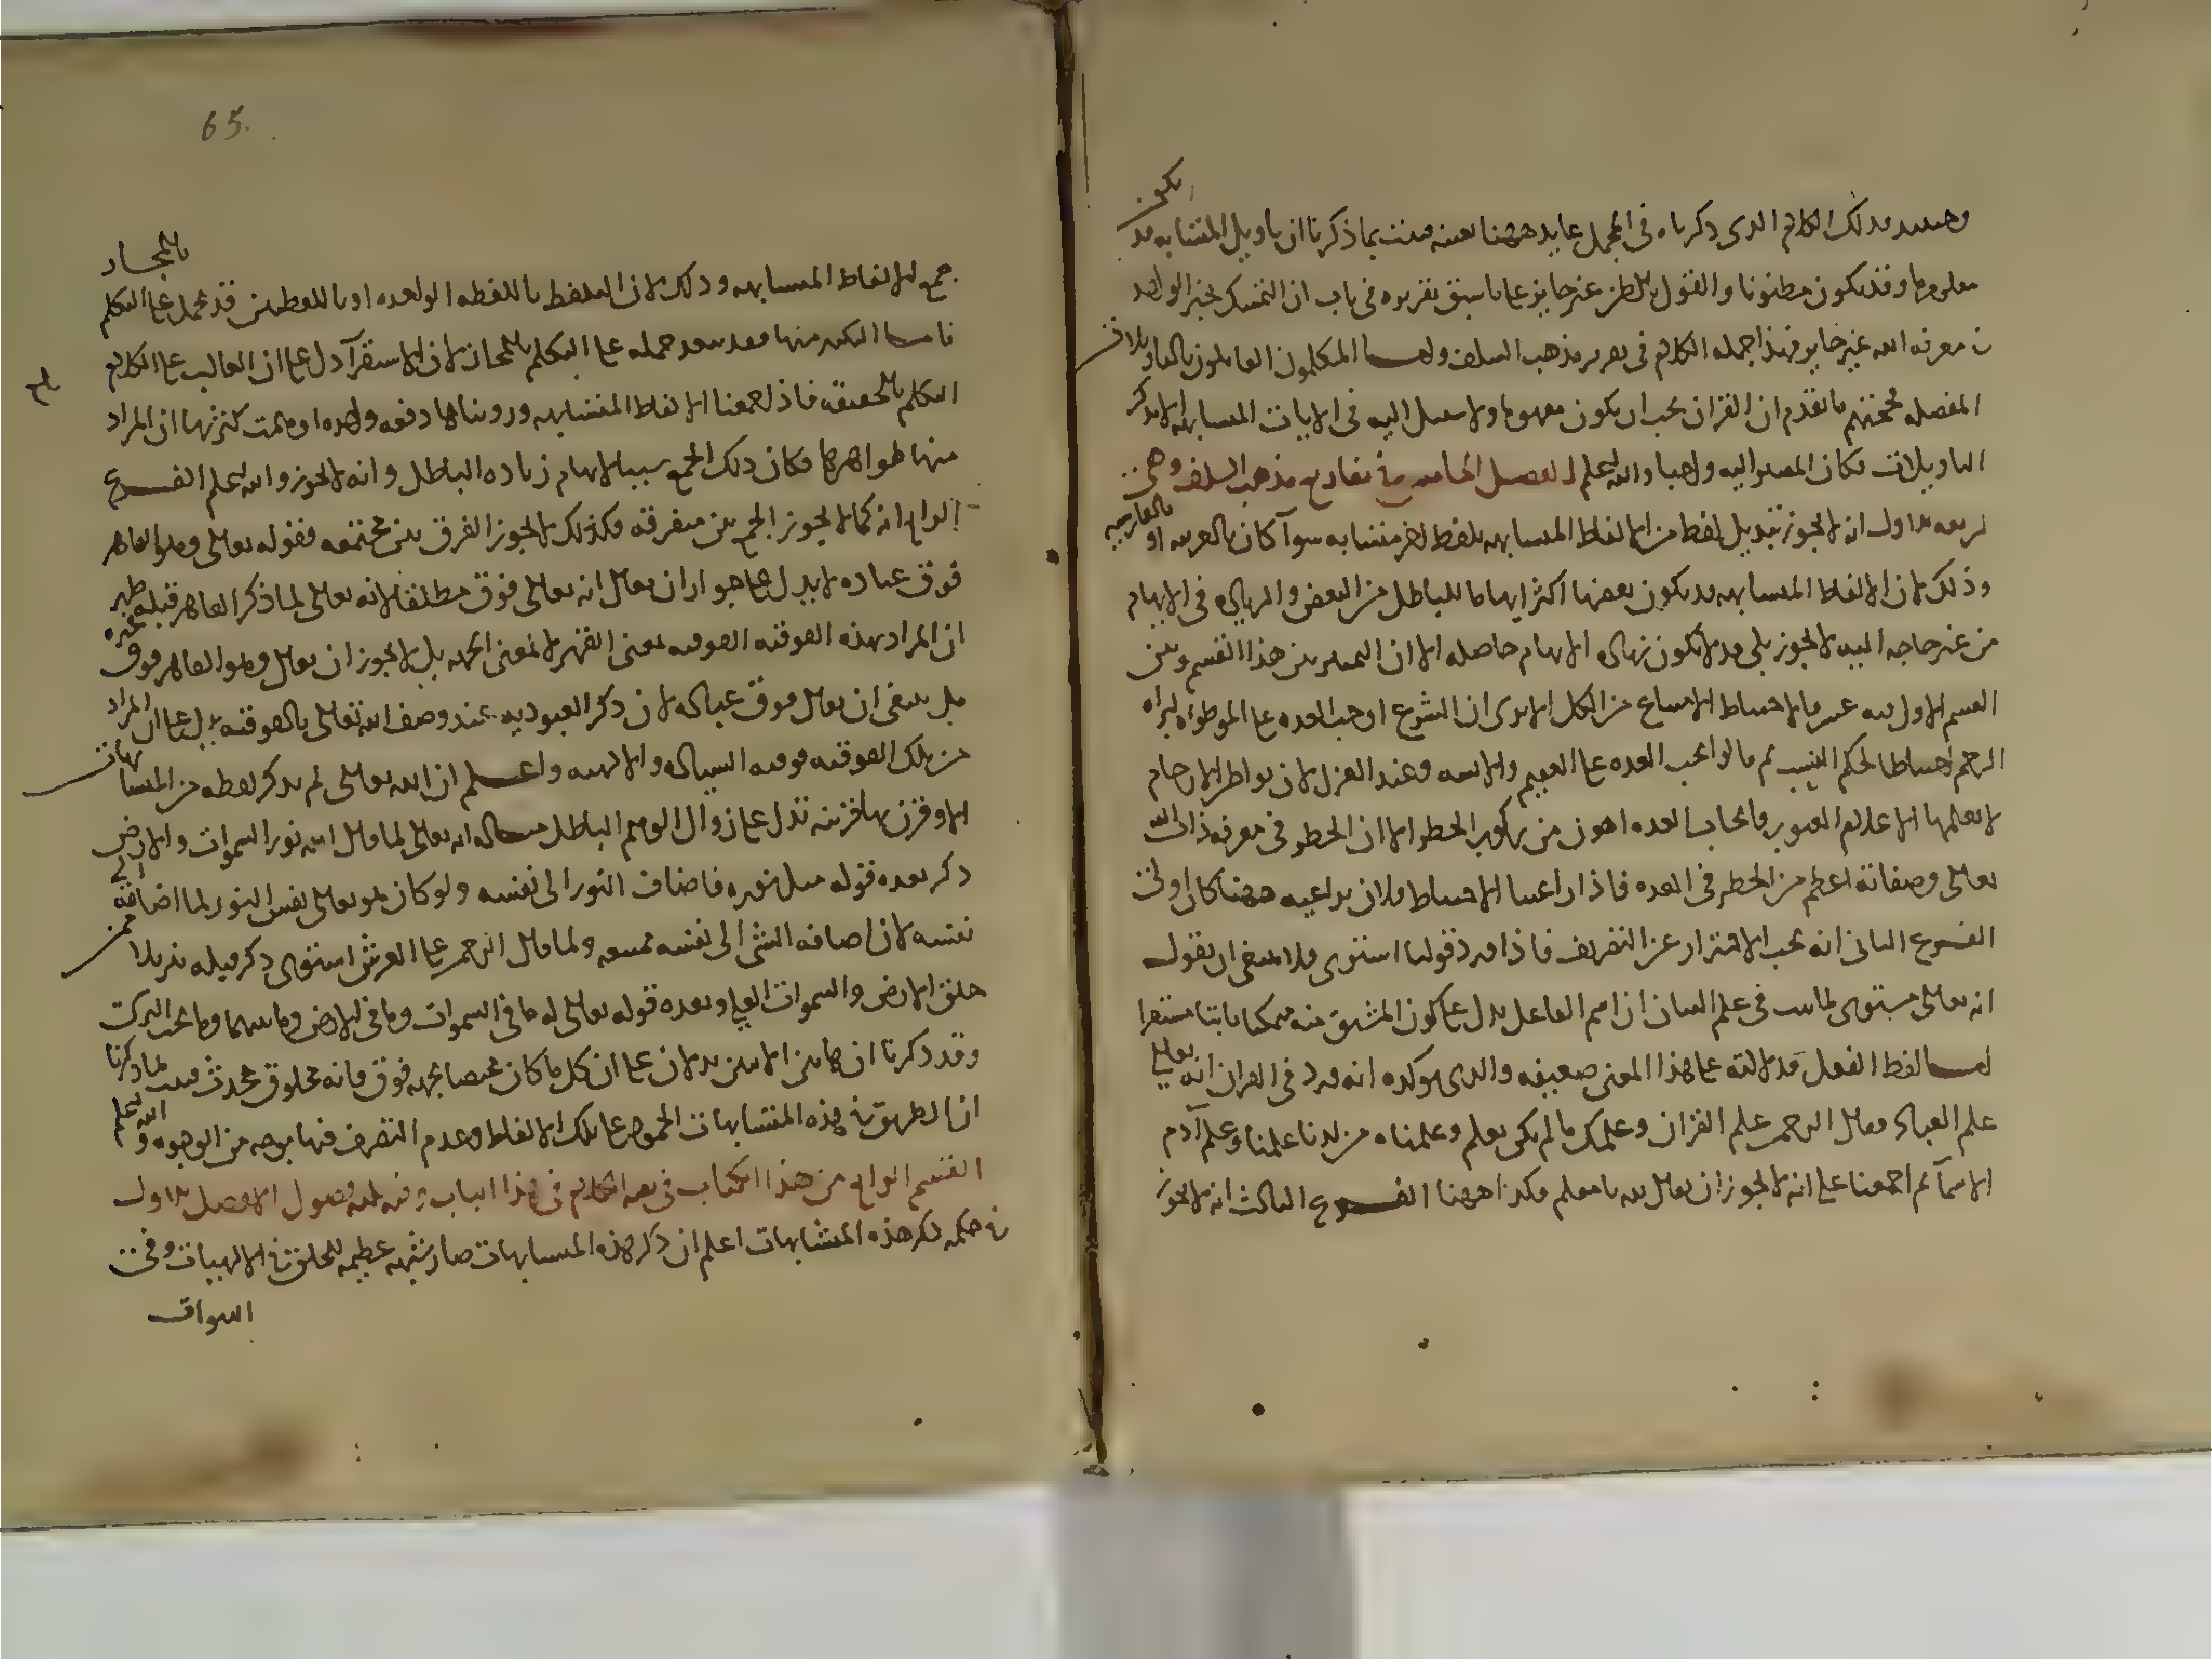 وحينئذ فذلك الكلام الذي ذكرناه في المجمل عايد ههنا بعينه فثبت بما ذكرنا ان تاويل المتشابه قد يكون
معلوما وقد يكون مظنونا والقول بالظن غير جايز على ما سبق تقريره في باب ان التمسك بخبر الواحد
في معرفة الله غير جايز فهذا جملة الكلام في تقرير مذهب السلف واما المتكلمون القايلون بالتاويلات
المفصلة فحجتهم ما تقدم ان القران يجب ان يكون مفهوما ولا سبيل اليه في الايات المتشابهة الا بذكر
التاويلات فكان المصير اليه واجبا والله اعلم الفصل الخامس في تفاريع مذهب السلف وهي
اربعة الاول انه لا يجوز تبديل لفظ من الالفاظ المتشابهة بلفظ اخر متشابه سوآ كان بالعربية او بالفارسية
وذلك لان الالفاظ المتشابهة قد يكون بعضها اكثر ايهاما للباطل من البعض والزيادة في الايهام
من غير حاجة اليه لا يجوز بلى قد لا يكون زيادة الايهام حاصلة الا ان التمييز بين هذا القسم وبين
القسم الاول فيه عسر فالاحتياط الامتناع من الكل الا ترى ان الشرع اوجب العدة على الموطوءة لبراة
الرحم احتياطا لحكم النسب ثم قالوا تجب العدة على العقيم والايسة وعند العزل لان بواطن الارحام
لا يعلمها الا علام الغيوب فايجاب العدة اهون من ركوب الخطر الا ان الخطر في معرفة ذات الله
تعالى وصفاته اعظم من الخطر في العدة فاذا راعينا الاحتياط فلان نراعيه ههنا كان اولى
الفرع الثاني انه يجب الاحتراز عن التصريف فاذا ورد قولنا استوى فلا ينبغي ان يقول
انه تعالى مستوى لما ثبت في علم البيان ان اسم الفاعل يدل على كون المشتق منه متمكنا ثابتا مستقرا
اما لفظ الفعل فدلالته على هذا المعنى ضعيفة والذي يؤكده انه ورد في القران انه تعالى
علم العباد فقال الرحمن علم القران وعلمك ما لم تكن تعلم وعلمناه من لدنا علما وعلم آدم
الاسمآ ثم اجمعنا على انه لا يجوز ان يقال لله يا معلم فكذا ههنا الفرع الثالث انه لا يجوز
65
جمع الالفاظ المتشابهة وذلك لان التلفظ باللفظة الواحدة او باللفظتين قد يحمل على التكلم بالمجاز
فاما الكثير منها فقد يبعد حمله على التكلم بالمجاز لان الاستقرآ دل على ان الغالب على الكلام
التكلم بالحقيقة فاذا جمعنا الالفاظ المتشابهة ورويناها دفعة واحدة اوهمت كثرتها ان المراد
منها ظواهرها فكان ذلك الجمع سببا لايهام زيادة الباطل وانه لا يجوز والله اعلم الفرع
الرابع انه كما لا يجوز الجمع بين متفرقه فكذلك لا يجوز الفرق بين مجتمعه فقوله تعالى وهو القاهر
فوق عباده لا يدل على جواز ان يقال انه تعالى فوق مطلقا لانه تعالى لما ذكر القاهر قبله ظهر
ان المراد بهذه الفوقية الفوقية بمعنى القهر لا بمعنى الجهة بل لا يجوز ان يقال وهو القاهر فوق غيره
بل ينبغي ان يقال فوق عباده لان ذكر العبودية عند وصف الله تعالى بالفوقية يدل على ان المراد
من تلك الفوقية فوقية السيادة والالهية واعلم ان الله تعالى لم يذكر لفظة من المتشابهات
الا وقرن بها قرينة تدل على زوال الوهم الباطل مثاله انه تعالى لما قال الله نور السموات والارض
ذكر بعده قوله مثل نوره فاضاف النور الى نفسه ولو كان هو تعالى نفس النور لما اضافه الى
نفسه لان اضافة الشي الى نفسه ممتنعة ولما قال الرحمن على العرش استوى ذكر قبله تنزيلا ممن
خلق الارض والسموات العلى وبعده قوله تعالى له ما في السموات وما في الارض وما بينهما وما تحت الثرى
وقد ذكرنا ان هاتين الايتين يدلان على ان كل ما كان مختصا بجهة فوق فانه مخلوق محدث فثبت لما ذكرنا
ان الطريق في هذه المتشابهات الجمود على تلك الالفاظ وعدم التصرف فيها بوجه من الوجوه والله اعلم
القسم الرابع من هذا الكتاب في بقية الكلام في هذا الباب وفيه ثلثة فصول الفصل الاول
في حكمة ذكر هذه المتشابهات اعلم ان ذكر هذه المتشابهات صار شبهة عظيمة للخلق في الالهيات وفي
النبوات